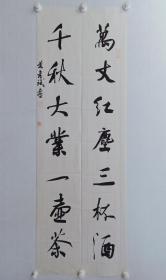 萬丈红塵三杯酒
千秋大業一壺茶